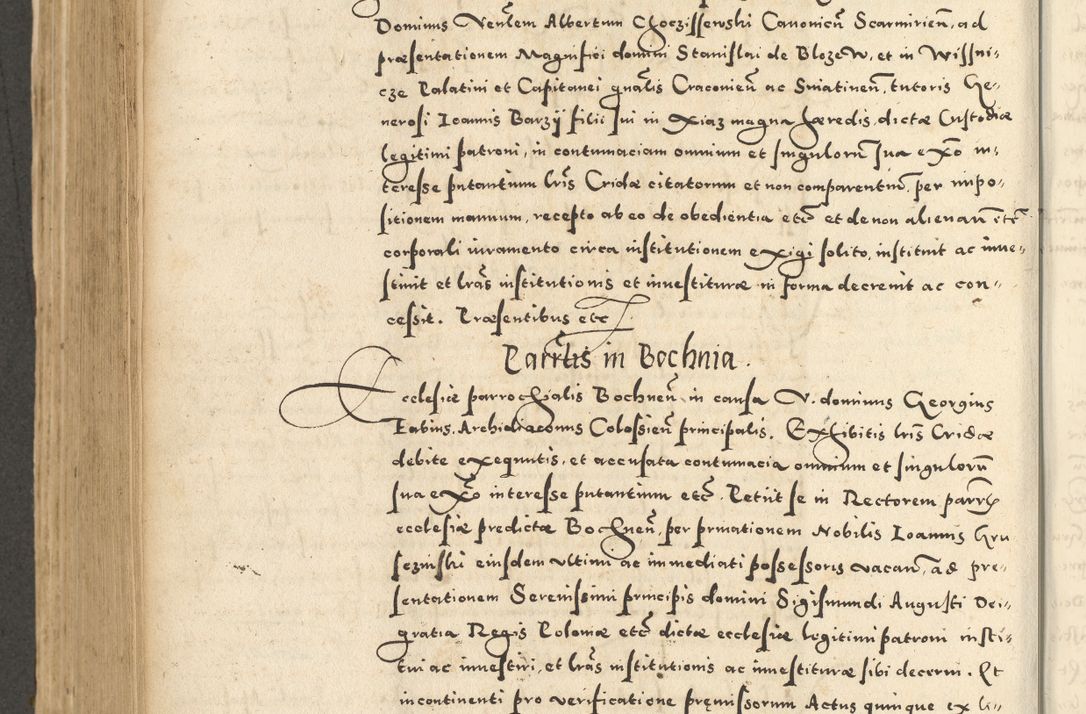 Dominus Venlem Albertum Choczissewski Canonicũ Scarmirieñ, ad
præsentationem Magnifici domini Stanislai de Blozew, et in Wissni-
cze Palatini et Capitanei gnalis Cracovieñ ac Sniatineñ, tutoris Ge-
nerosi Ioannis Barzy filii sui in Xiaz magna hæredis, dictæ Custodiæ
legitimi patroni, in contumaciam omnium et singulorũ sua exõ in-
teresse putantium lris Cridæ citatorum et non comparentiũ, per impo-
sitionem manuum, recepto ab eo de obedientia etč et de non alienañ etč
corporali iuramento circa institutionem exigi solito, instituit ac inve-
stivit et lras institutionis et investituræ in forma decrevit ac con-
cessit. Præsentibus etc
Parrtis in Bochnia.
Ecclesiæ parrochialis Bochneñ in causa V. dominus Georgius
Fabius, Archidiaconus Colossieñ principalis. Exhibitis lris Cridæ
debite exequutis, et accusata contumacia omnium et singulorũ
sua exõ interesse putantium etč. Petiit se in Rectorem parrlis
ecclesiæ predictæ Bochneñ, per prnationem Nobilis Ioannis Gru
sezinski eiusdem ultimi ac immediati possessoris vacañ, ad pre-
sentationem Serenissimi principis domini Sigismundi Augusti Dei-
gratia Regis Poloniæ etč dictæ ecclesiæ legitimi patroni insti-
tui ac investiri, et lras institutionis ac investituræ sibi decerni. Et
incontinenti pro verificatione pręmissorum Actus quinque ex li-